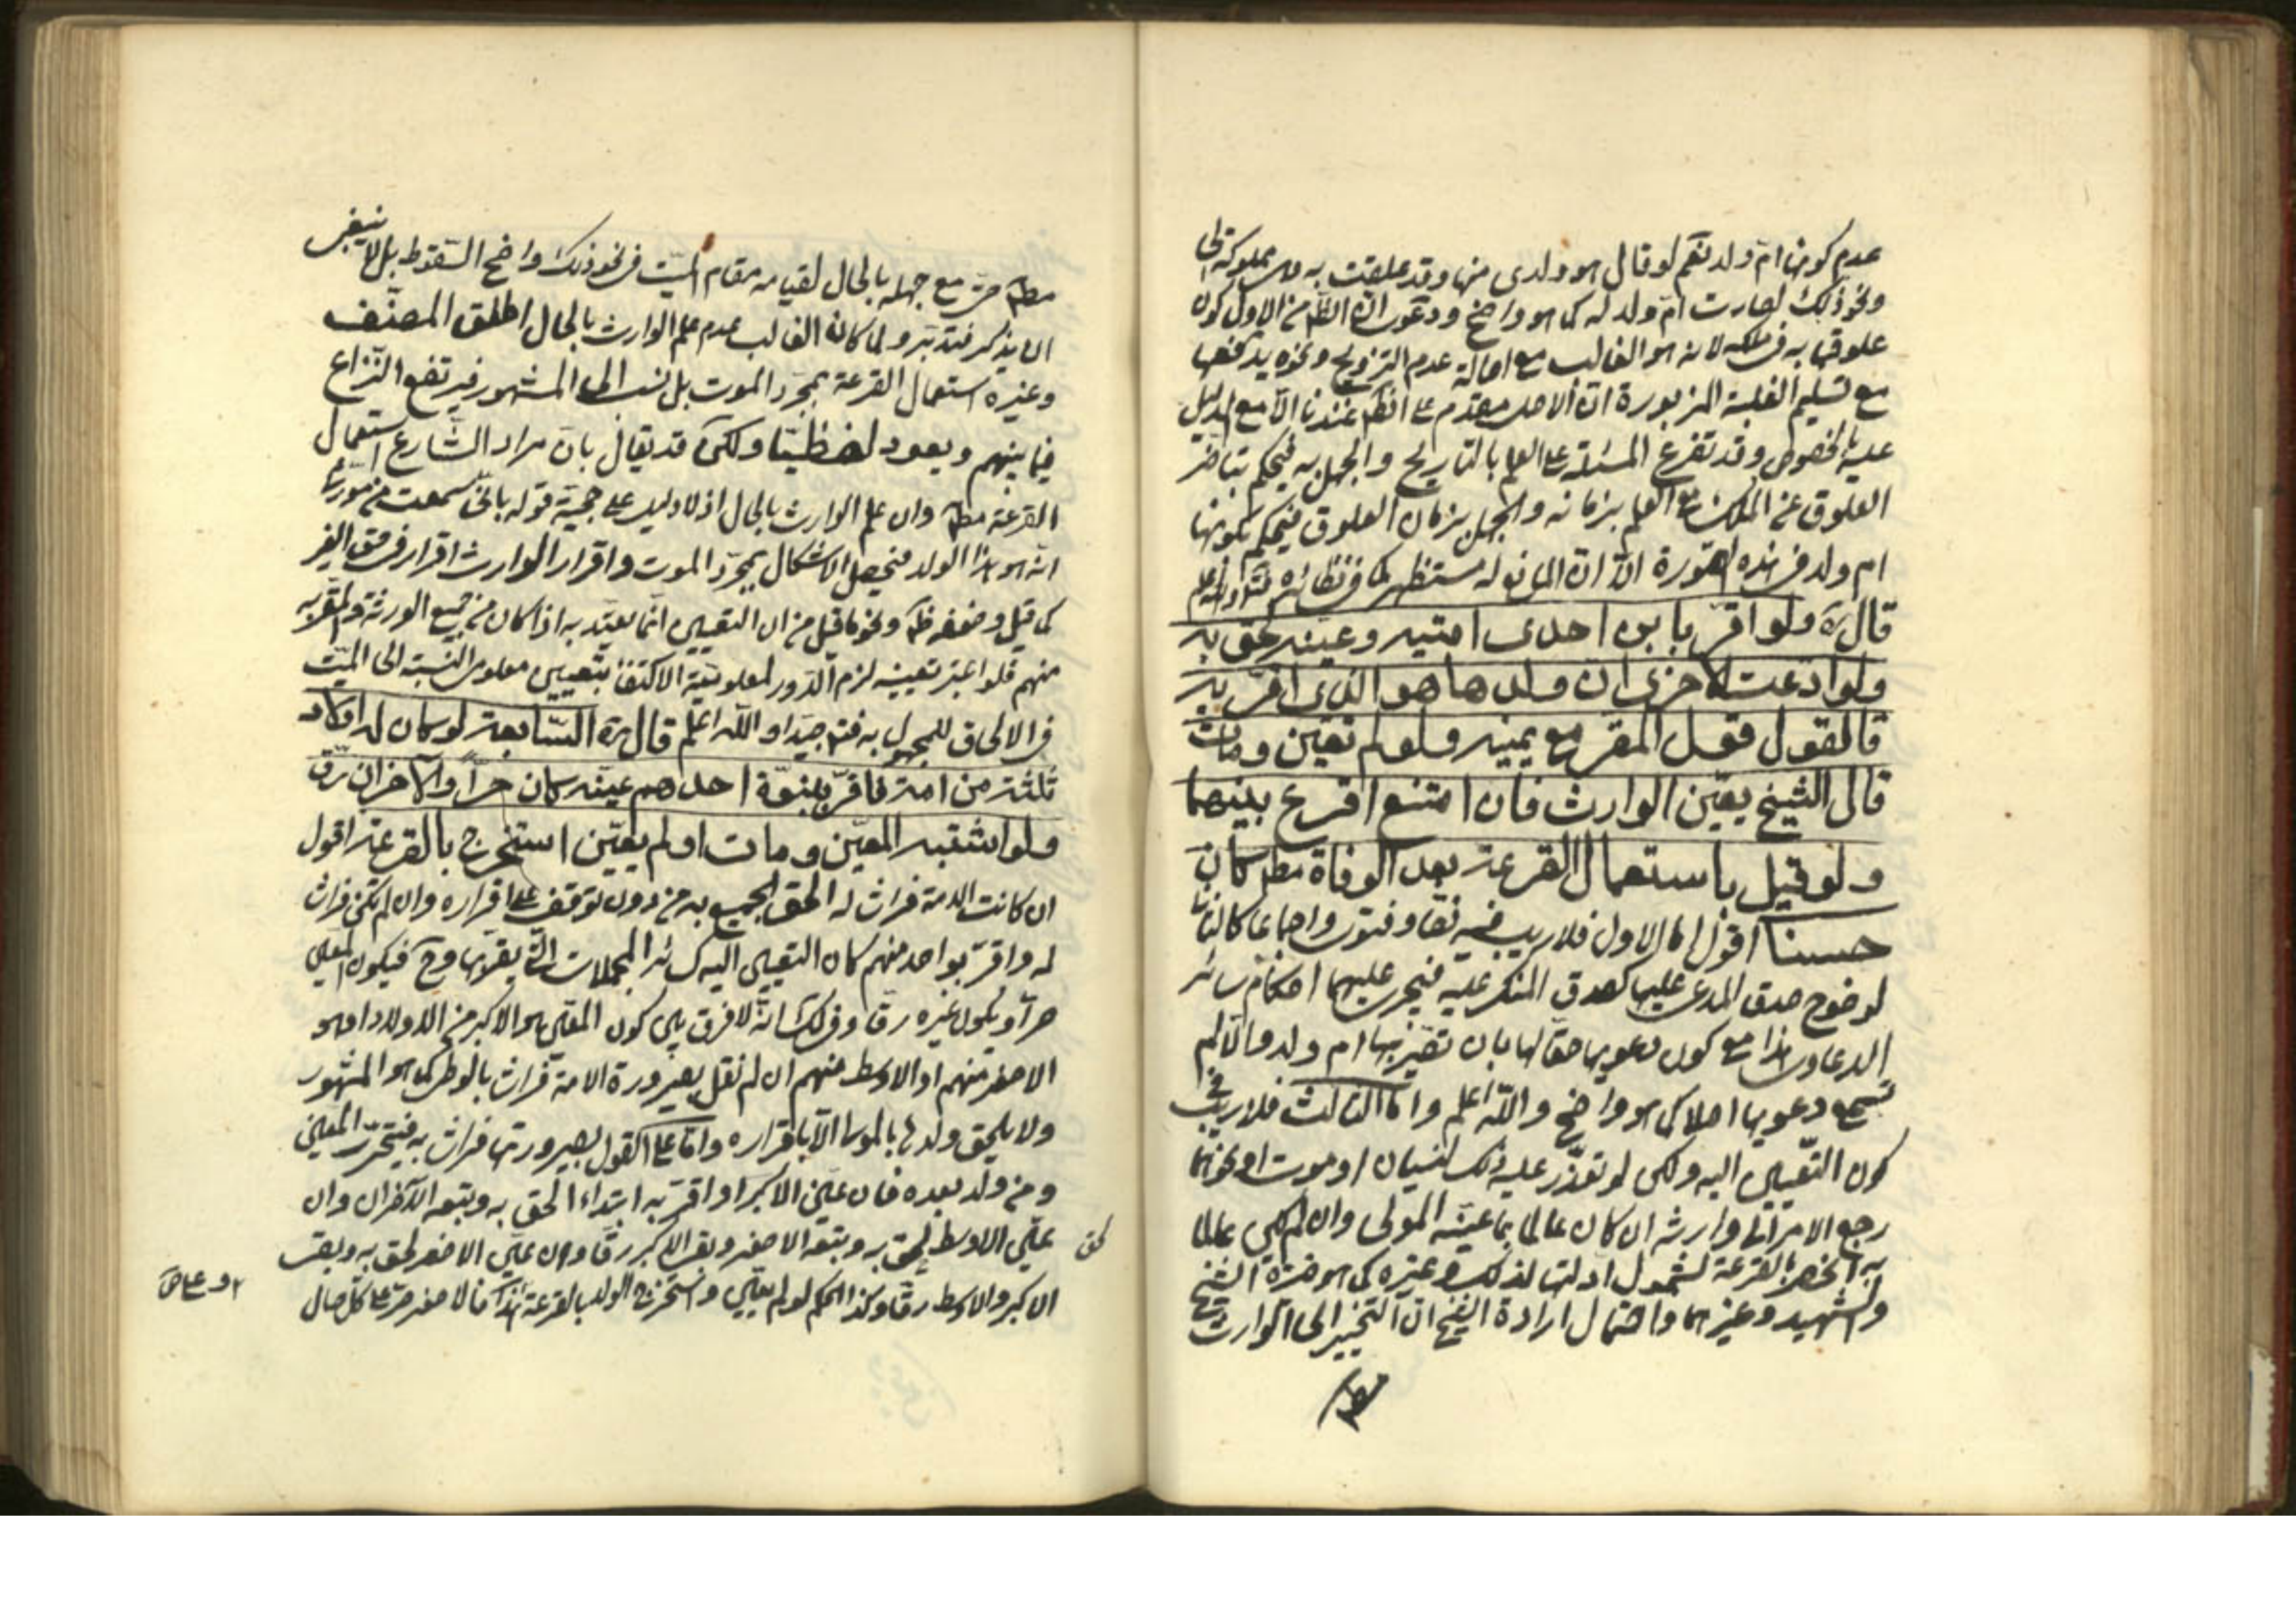 عدم كونها ام ولد نعم لو قال هو ولدى منها وقد علقت به وهى مملوكة لى
ونحو ذلك لصارت ام ولد له كما هو واضح ودعوى ان الظ من الاول كون
علوقها به فى ملكه لانه هو الغالب مع اصالة عدم التزويج ونحوه يدفعها
مع تسليم الغلبة المزبورة ان الاصل مقدم على الظ عندنا الا مع الدليل
عليه بالخصوص وقد تفرع المسئلة على العلم بالتاريخ والجهل به فيحكم بتاخر
العلوق عن الملك مع العلم بزمانه والجهل بزمان العلوق فيحكم بكونها
ام ولد فى هذه الصورة الا ان المانع له مستظهر كما فى نظائره والله اعلم
قال ره ولو اقر بابن احدى امتيه وعينه لحق به
ولو ادعت الاخرى ان ولدها هو الذى اقر به
فالقول قول المقر مع يمينه ولو لم يعين ومات
قال الشيخ يعين الوارث فان امتنع اقرع بينهما
ولو قيل باستعمال القرعة بعد الوفاة مطلقا كان
حسنا اقول اما الاول فلا ريب فيه نصا وفتوى واجماعا كالثانى
لوضوح صدق المدعى عليها كصدق المنكر عليه فيجرى عليهما احكام سائر
الدعاوى هذا مع كون دعويها حقا لها بان تصير بها ام ولد والا لم
تسمع دعويها اصلا كما هو واضح والله اعلم واما الثالث فلا ريب فى
كون التعيين اليه ولكن لو تعذر عليه ذلك لنسيان او موت او نحوهما
رجع الامر الى وارثه ان كان عالما بما عينه المولى وان لم يكن عالما
به انحصر بالقرعة لشمول ادلتها لذلك وغيره كما هو خيرة الشيخ
والشهيد وغيرهما واحتمال ارادة الشيخ ان التخيير الى الوارث
مط حتى مع جهله بالحال لقيامه مقام الميت فى نحو ذلك واضح السقوط بل لا ينبغى
ان يذكر فتدبر ولما كان الغالب عدم علم الوارث بالحال اطلق المصنف
وغيره استعمال القرعة بمجرد الموت بل نسب الى المشهور فيرتفع النزاع
فيما بينهم ويعود لفظيا ولكن قد يقال بان مراد الشارع استعمال
القرعة مط وان علم الوارث بالحال اذ لا دليل على حجية قوله بانى سمعت من مورثى
انه هو هذا الولد فيحصل الاشكال بمجرد الموت واقرار الوارث اقرار فى حق الغير
كما قيل وضعفه ظ ونحو ما قيل من ان التعيين انما يعتد به اذا كان من جميع الورثة والمقر به
منهم فلو اعتبر تعيينه لزم الدور لمعلومية الاكتفا بتعيين معلوم النسبة الى الميت
فى الالحاق للمجهول به فتم جيدا والله اعلم قال ره السابعة لو كان له اولاد
ثلثة من امة فاقر ببنوة احدهم عينه كان حرا والاخران رق
ولو اشتبه المعين ومات او لم يعين استخرج بالقرعة اقول
ان كانت الامة فراش له الحق الجميع به من دون توقف على اقراره وان لم تكن فراش
له واقر بواحد منهم كان التعيين اليه كسائر المجملات التى يقر بها وح فيكون المعين
حرا ويكون غيره رقا ولا شك انه لا فرق بين كون المعين هو الاكبر من الاولاد او هو
الاصغر منهم او الاوسط منهم ان لم نقل بصيرورة الامة فراش بالوطى كما هو المشهور
ولا يلحق ولدها بالمولى الا باقراره واما على القول بصيرورتها فراش به فيتحرر المعين
ومن ولد بعده فان عين الاكبر او اقر به ابتداء الحق به وتبعه الآخران وان
عين الاوسط لحق به وتبعه الاصغر وبقى الاكبر رقا وان عين الاصغر لحق به وبقى
لحق
الاكبر والاوسط رقا وكذا الحكم لو لم يعين واستخرج الولد بالقرعة اذ الاصغر حر على كل حال